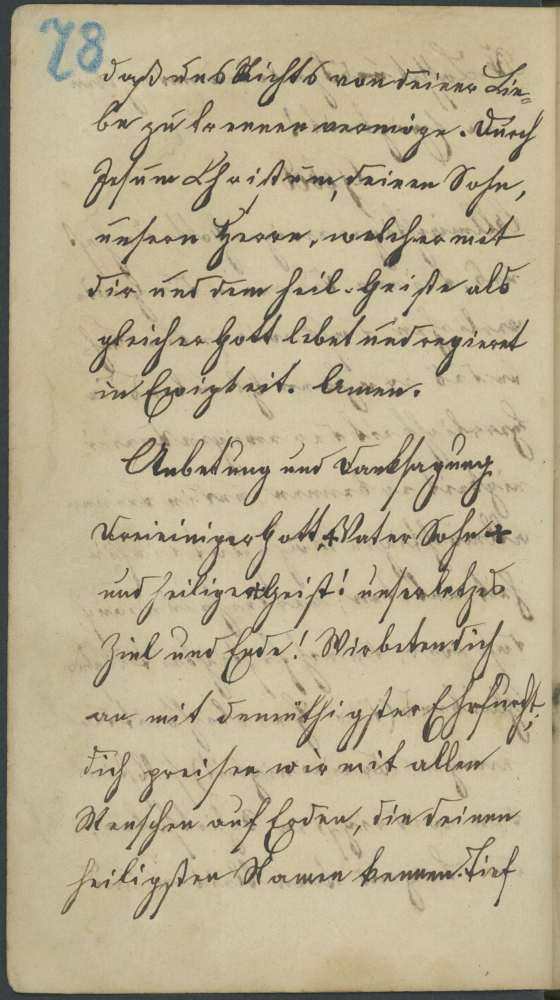 78
daß uns Nichts von deiner Lie-
be zu trennen vermöge. Durch
Jesum Christum, deinen Sohn,
unsern Herrn, welcher mit
dir und dem heil. Geiste als
gleicher Gott lebet und regieret
in Ewigkeit. Amen.
Anbetung und Danksagung
Dreieiniger Gott, + Vater Sohn +
und heiliger + Geist! unser letztes
Ziel und Ende! Wir beten dich
an mit demüthigster Ehrfurcht,
dich preisen wir mit allen
Menschen auf Erden, die deinen
heiligsten Namen kennen. Tief